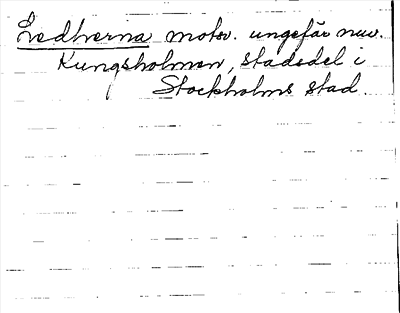 Ledherna motsv. ungefär nuv.
Kungsholmen, stadsdel i
Stockholms stad.